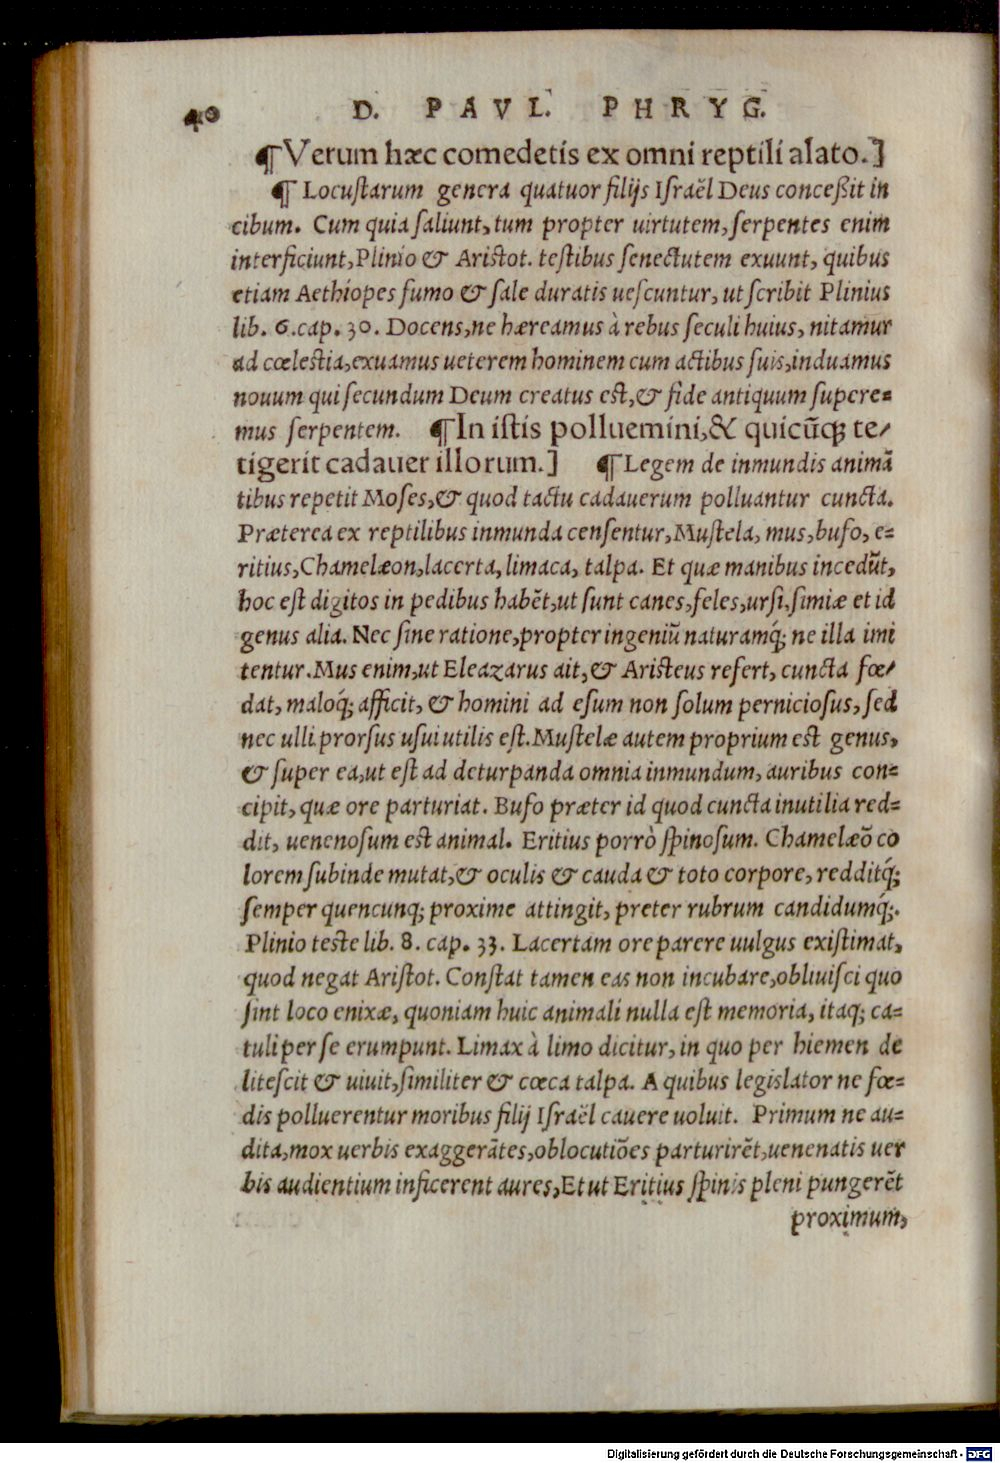 40 D. PAVL. PHRYG.
¶Verum hæc comedetis ex omni reptili alato.]
¶ Locuſtarum genera quatuor filijs Iſraël Deus conceßit in
cibum. Cum quia ſaliunt, tum propter uirtutem, ſerpentes enim
interficiunt, Plinio & Ariſtot. teſtibus ſenectutem exuunt, quibus
etiam Aethiopes fumo & ſale duratis ueſcuntur, ut ſcribit Plinius
lib. 6. cap. 30. Docens, ne hæreamus à rebus ſeculi huius, nitamur
ad cœleſtia, exuamus ueterem hominem cum actibus ſuis, induamus
nouum qui ſecundum Deum creatus eſt, & fide antiquum ſupere=
mus ſerpentem. ¶In iſtis polluemini, & quicūq; te/
tigerit cadauer illorum.] ¶Legem de inmundis animã
tibus repetit Moſes, & quod tactu cadauerum polluantur cuncta.
Præterea ex reptilibus inmunda cenſentur, Muſtela, mus, bufo, e=
ritius, Chamelæon, lacerta, limaca, talpa. Et quæ manibus incedūt,
hoc eſt digitos in pedibus habēt, ut ſunt canes, feles, urſi, ſimiæ et id
genus alia. Nec ſine ratione, propter ingeniū naturamq́; ne illa imi
tentur. Mus enim, ut Eleazarus ait, & Ariſteus refert, cuncta fœ/
dat, maloq́; afficit, & homini ad eſum non ſolum pernicioſus, ſed
nec ulli prorſus uſui utilis eſt. Muſtelæ autem proprium eſt genus,
& ſuper ea, ut eſt ad deturpanda omnia inmundum, auribus con=
cipit, quæ ore parturiat. Bufo præter id quod cuncta inutilia red=
dit, uenenoſum eſt animal. Eritius porrò ſpinoſum. Chamelæõ co
lorem ſubinde mutat, & oculis & cauda & toto corpore, redditq́;
ſemper quencunq; proxime attingit, preter rubrum candidumq́;.
Plinio teſte lib. 8. cap. 33. Lacertam ore parere uulgus exiſtimat,
quod negat Ariſtot. Conſtat tamen eas non incubare, obliuiſci quo
ſint loco enixæ, quoniam huic animali nulla eſt memoria, itaq; ca=
tuli per ſe erumpunt. Limax à limo dicitur, in quo per hiemen de
liteſcit & uiuit, ſimiliter & cœca talpa. A quibus legislator ne fœ=
dis polluerentur moribus filij Iſraël cauere uoluit. Primum ne au=
dita, mox uerbis exaggerātes, oblocutiões parturirēt, uenenatis uer
bis audientium inficerent aures, Et ut Eritius ſpinis pleni pungerēt
proximum,
Digitalisierung gefördert durch die Deutsche Forschungsgemeinschaft - DFG